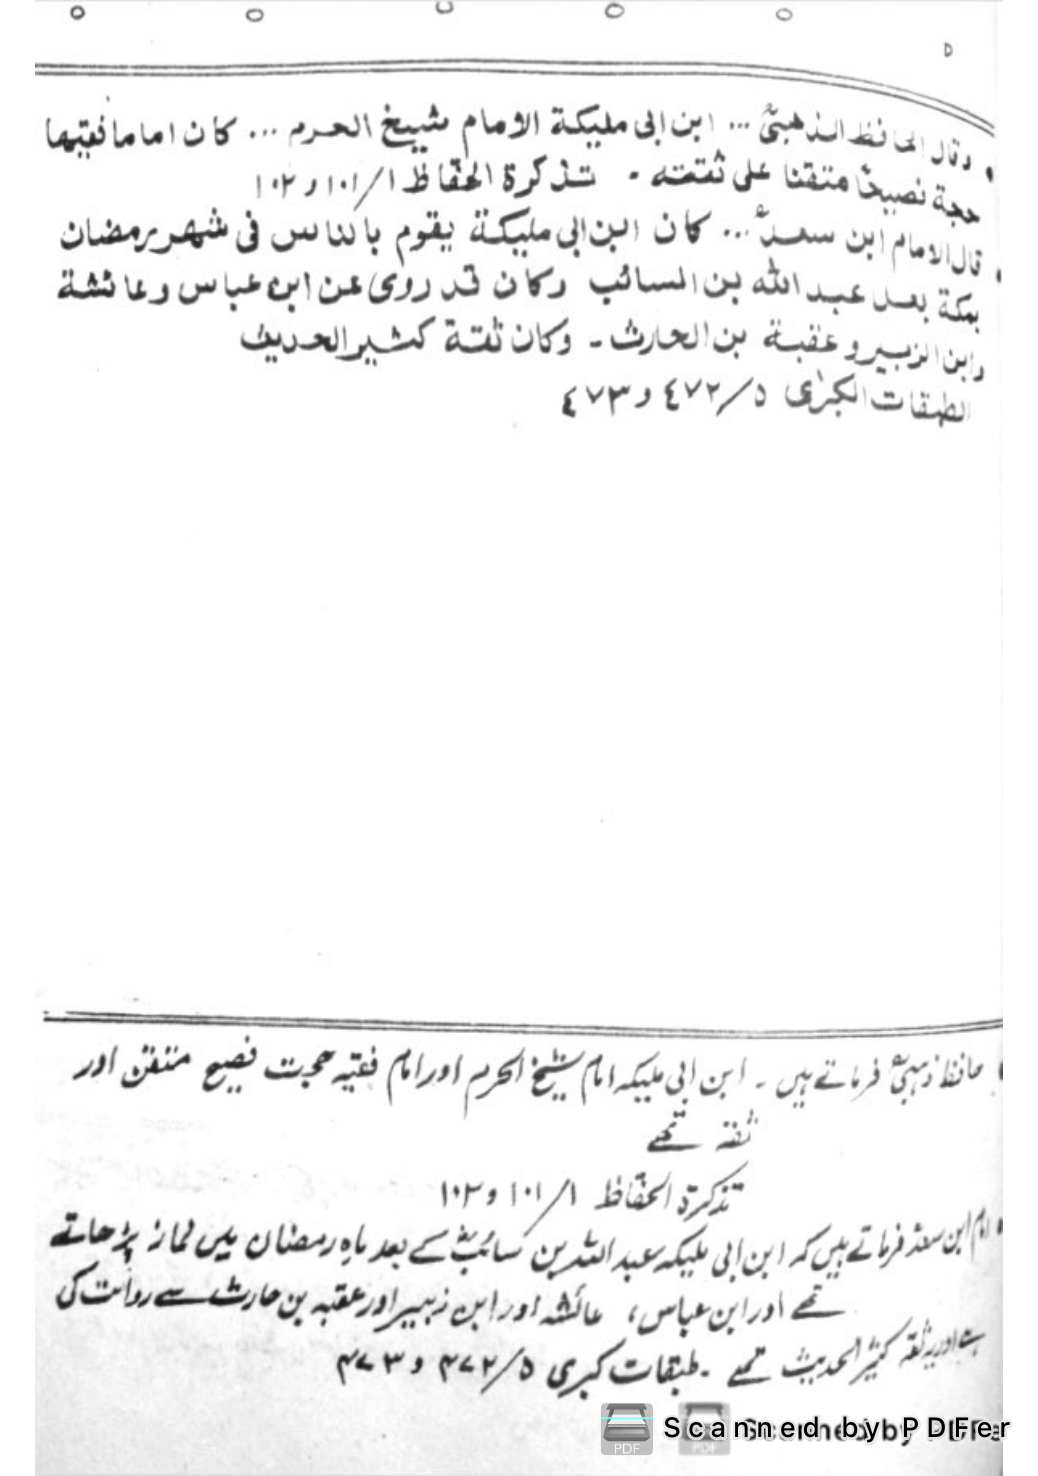 وقال الحافظ الذهبیؒ ... ابن ابی ملیکة الامام شیخ الحرم ... کان اماما فقیها
حجة فصیحًا متقنا علی ثقته ۔ تذکرة الحفاظ ۱/۱۰۱ و ۱۰۲
قال الامام ابن سعدؒ ... کان ابن ابی ملیکة یقوم بالناس فی شهر رمضان
بمکة بعد عبد الله بن السائب وکان قد روی عن ابن عباس وعائشة
وابن الزبیر وعقبة بن الحارث ۔ وکان ثقة کثیر الحدیث
الطبقات الکبرٰی ٥/٤٧٢ و ٤٧٣
حافظ ذہبیؒ فرماتے ہیں ۔ ابن ابی ملیکہ امام شیخ الحرم اور امام فقیہ حجت فصیح متقن اور
ثقہ تھے
تذکرة الحفاظ ۱/۱۰۱ و ۱۰۲
امام ابن سعدؒ فرماتے ہیں کہ ابن ابی ملیکہ عبد اللہ بن سائبؓ کے بعد ماہِ رمضان میں نماز پڑھاتے
تھے اور ابن عباس، عائشہ اور ابن زبیر اور عقبہ بن حارث سے روایت کی
ہے اور یہ ثقہ کثیر الحدیث تھے ۔ طبقات کبری ۵/۴۷۲ و ۴۷۳
Scanned by PDFer